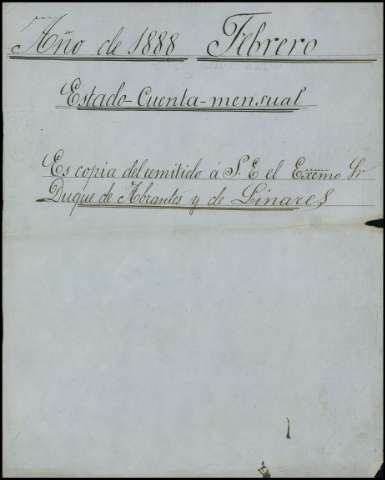 Año de 1888 Febrero
Estado-Cuenta-mensual
Es copia del remitido á S. E el Exmo Sr
Duque de Abrantes y de Linares